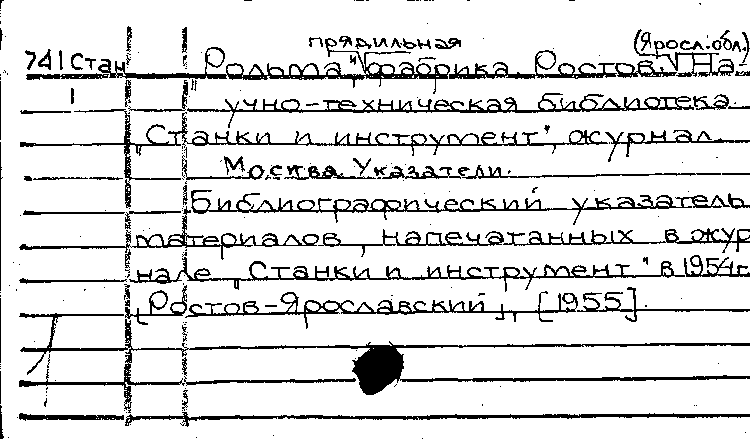 прядильная (Яросл. обл.)
741 Стан „Рольма“, фабрика Ростов. На-
1 учно-техническая библиотека.
„Станки и инструмент“, журнал.
Москва. Указатели.
Библиографический указатель
материалов, напечатанных в жур
нале „Станки и инструмент“ в 1954 г.
[Ростов-Ярославский], [1955].